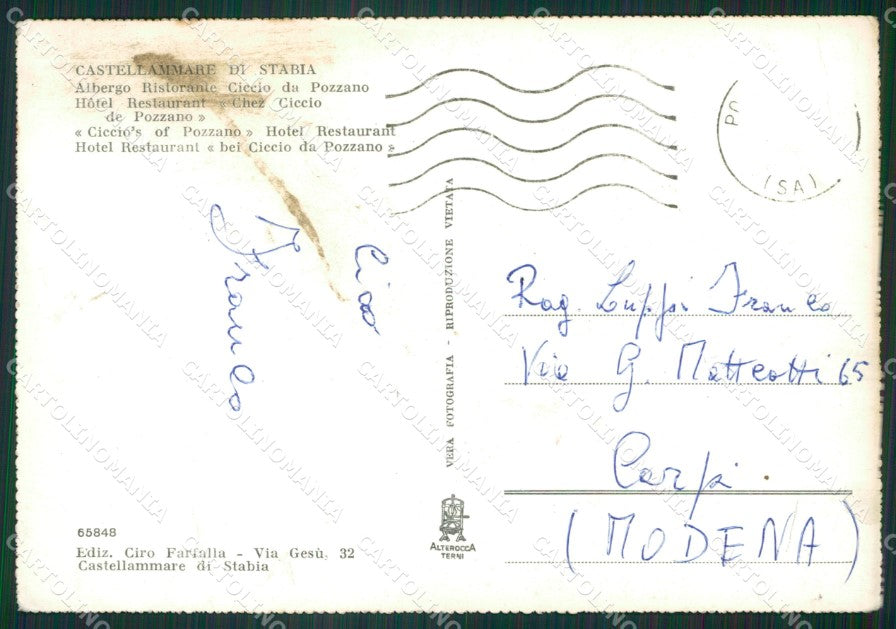 CASTELLAMMARE DI STABIA
Albergo Ristorante Ciccio da Pozzano
Hôtel Restaurant « Chez Ciccio
de Pozzano »
« Ciccio's of Pozzano » Hotel Restaurant
Hotel Restaurant « bei Ciccio da Pozzano »
Ciao
Franco
65848
Ediz. Ciro Farfalla - Via Gesù, 32
Castellammare di Stabia
VERA FOTOGRAFIA - RIPRODUZIONE VIETATA
ALTEROCCA
TERNI
(SA)
Rag. Luppi Franco
Via G. Matteotti 65
Carpi
(MODENA)
CARTOLINOMANIA